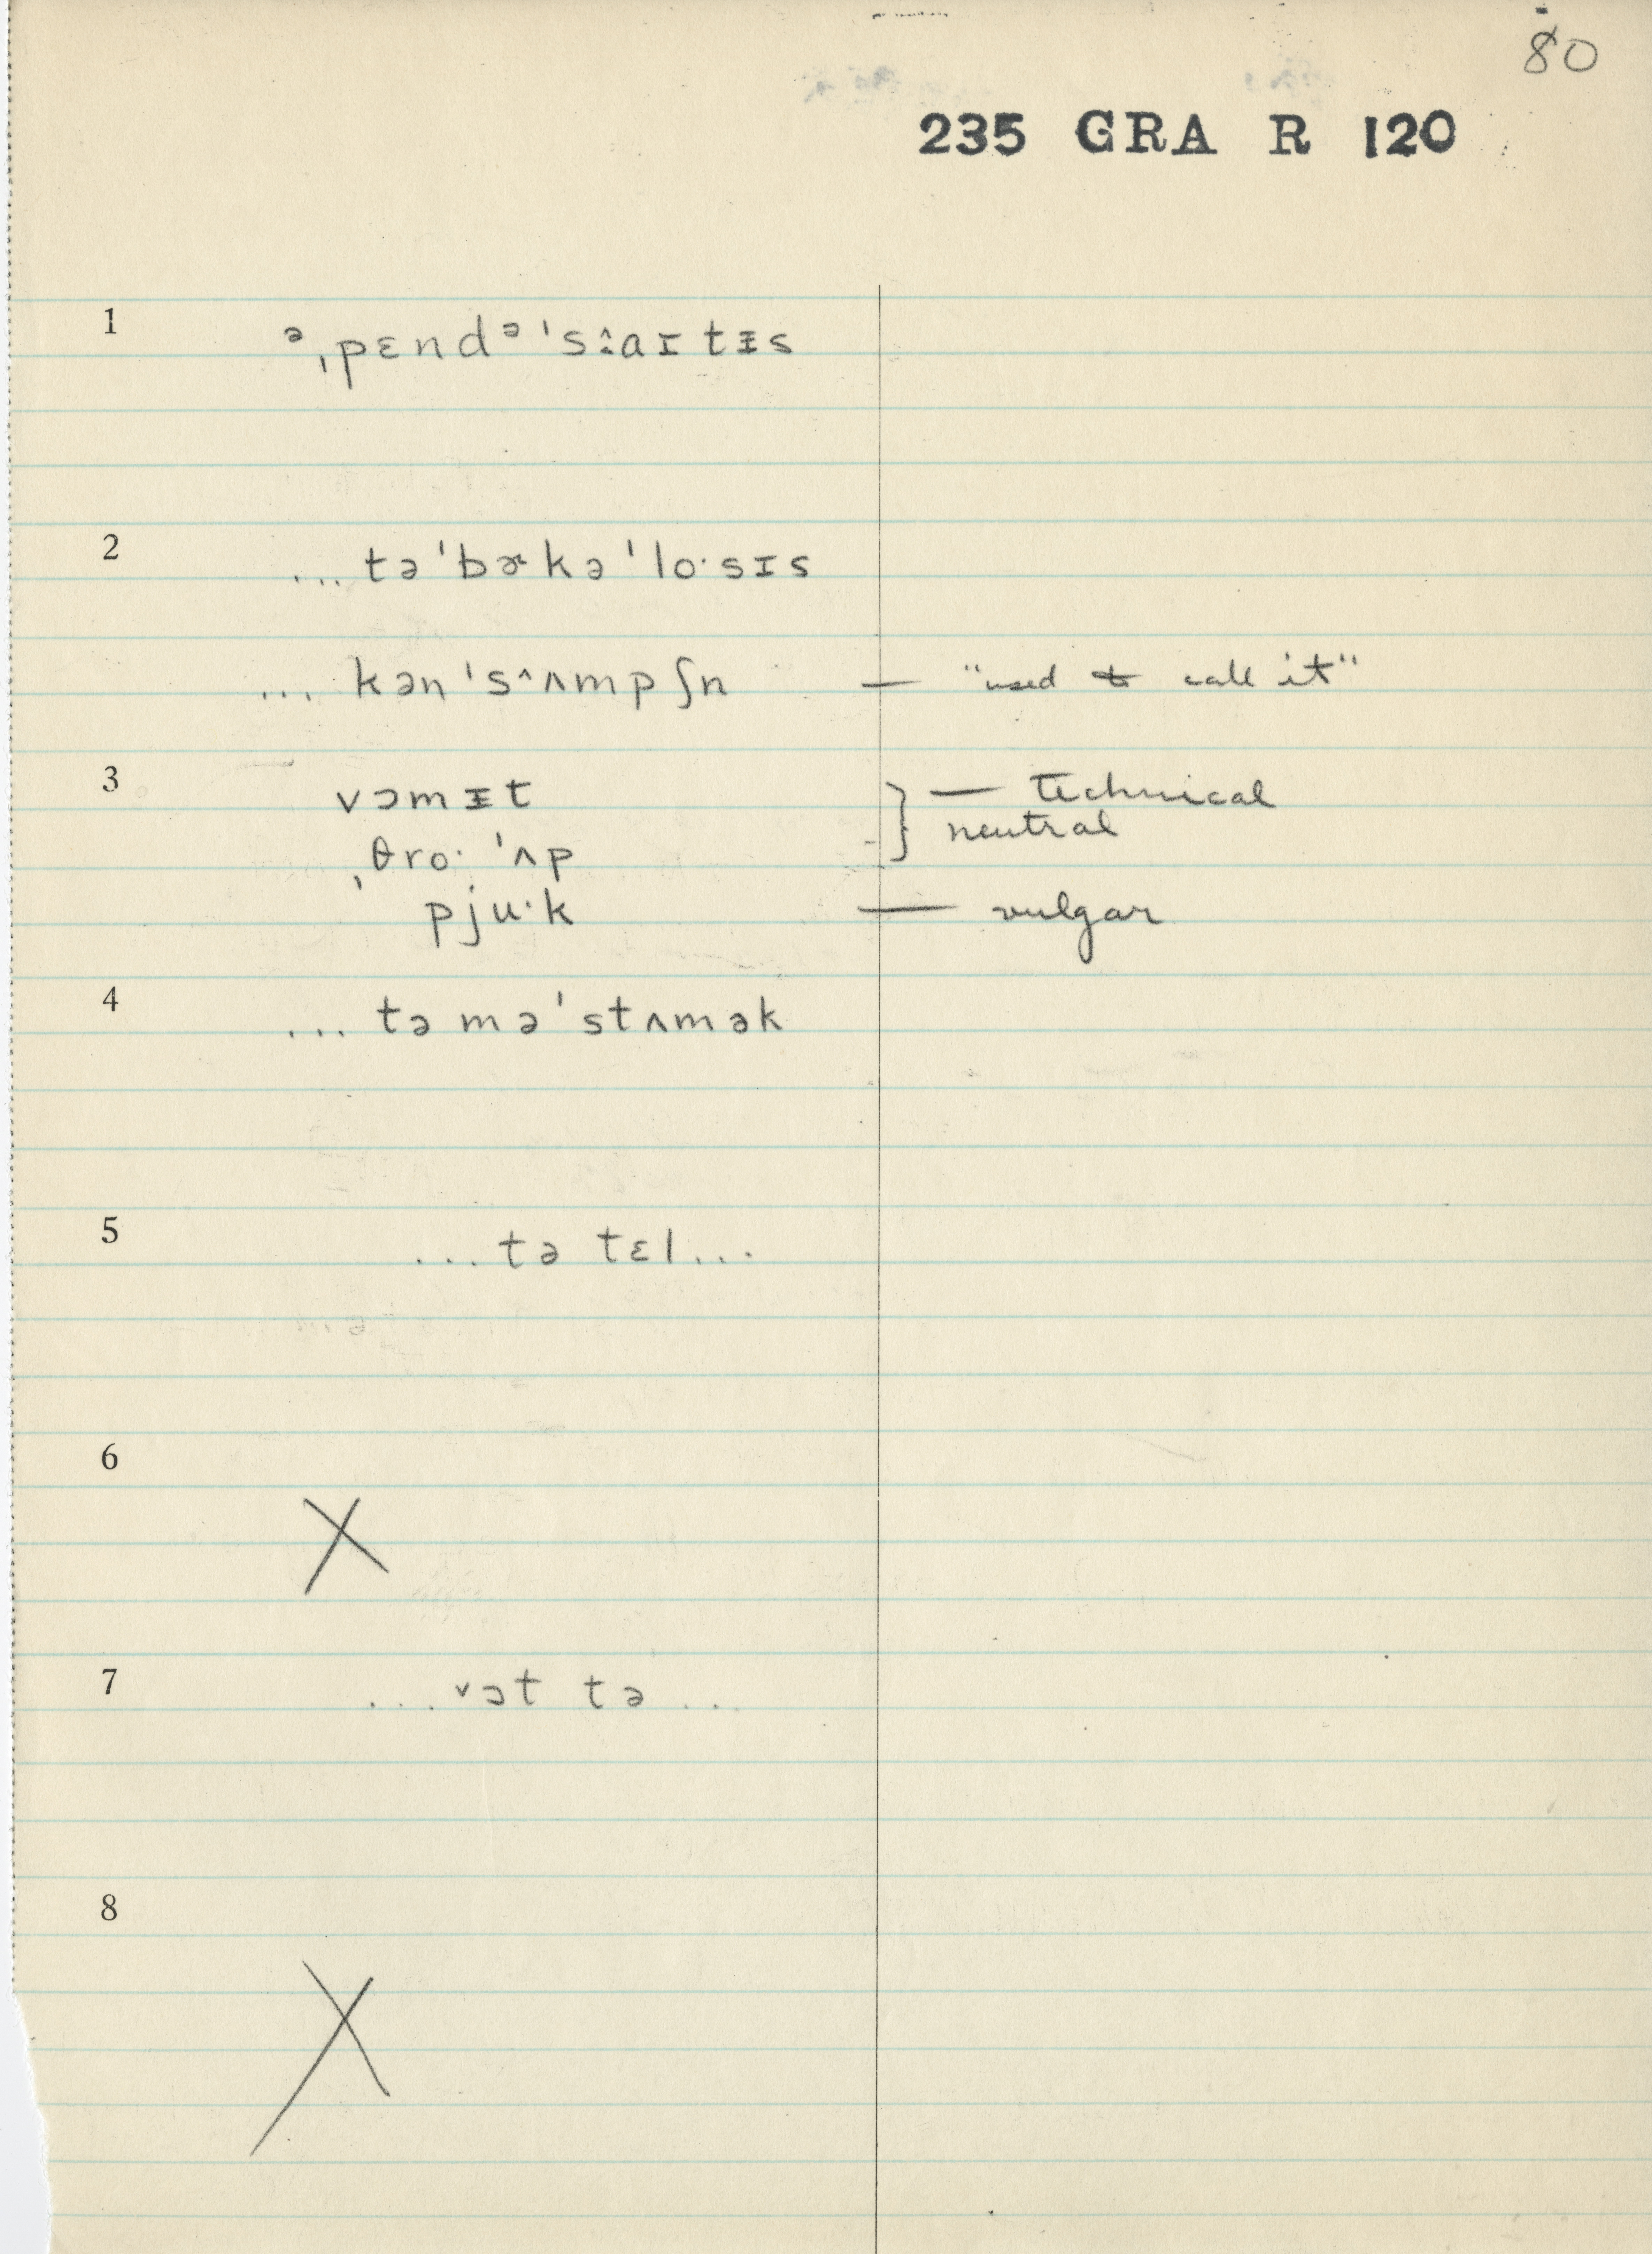 80
235 GRA R 120
1 ᵊˌpɛndᵊˈsːaɪtɪs
2 ... təˈbɚkəˈloˑsɪs
... kənˈsˆʌmpʃn — "used to call it"
3 vɔmɪt } — technical
neutral
ˌθroˑ ˈʌp
pjuˑk — vulgar
4 ... tə məˈstʌmək
5 ... tə tɛl ...
6 X
7 ... vɔt tə ...
8 X